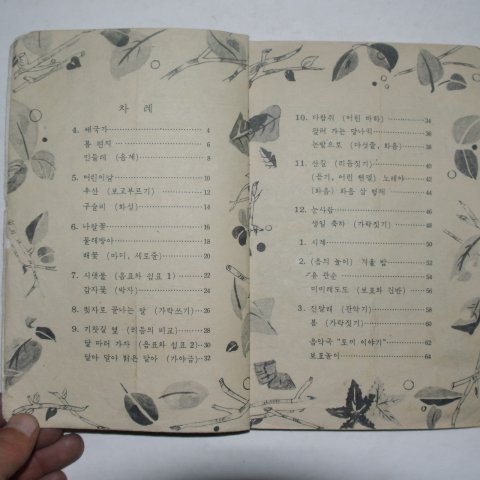 차 례
4. 애국가 4
봄 편지 6
민들레 (음계) 8
5. 어린이날 10
우산 (보고부르기) 12
구슬비 (화성) 14
6. 나팔꽃 16
물레방아 18
해꽃 (마디, 세로줄) 20
7. 시냇물 (음표와 쉼표 1) 22
감자꽃 (박자) 24
8. 빛자로 끝나는 말 (가락쓰기) 26
9. 기찻길 옆 (리듬의 비교) 28
달 따러 가자 (음표와 쉼표 2) 30
달아 달아 밝은 달아 (가야금) 32
10. 다람쥐 (어린 바하) 34
팔러 가는 당나귀 36
눈밭으로 (다섯줄, 화음) 38
11. 산길 (리듬짓기) 40
(듣기, 어린 헨델) 노래야 44
(화음) 화음 삼 형제
12. 눈사람 46
생일 축하 (가락짓기) 48
1. 시계 50
2. (음의 놀이) 겨울 밤 52
유 관순 54
미미레도도 (보표와 건반) 56
3. 진달래 (관악기) 58
봄 (가락짓기) 60
음악국 "토끼 이야기" 62
보표놀이 64